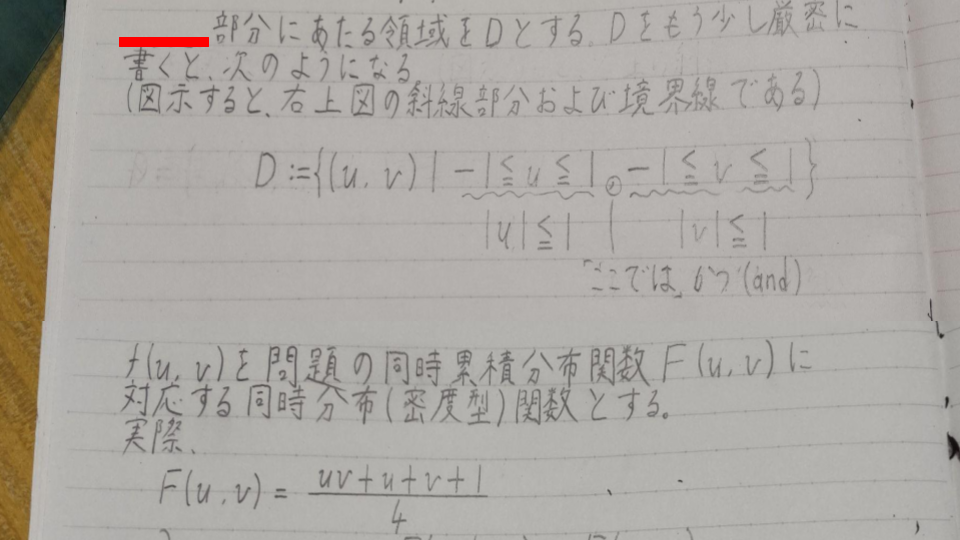 部分にあたる領域をDとする。Dをもう少し厳密に
書くと、次のようになる。
(図示すると、右上図の斜線部分および境界線である)
D:={(u, v) | -1≦u≦1, -1≦v≦1}
|u|≦1 |v|≦1
ここでは、かつ(and)
f(u, v)を問題の同時累積分布関数F(u, v)に
対応する同時分布(密度型)関数とする。
実際、
F(u, v) = (uv+u+v+1)/4